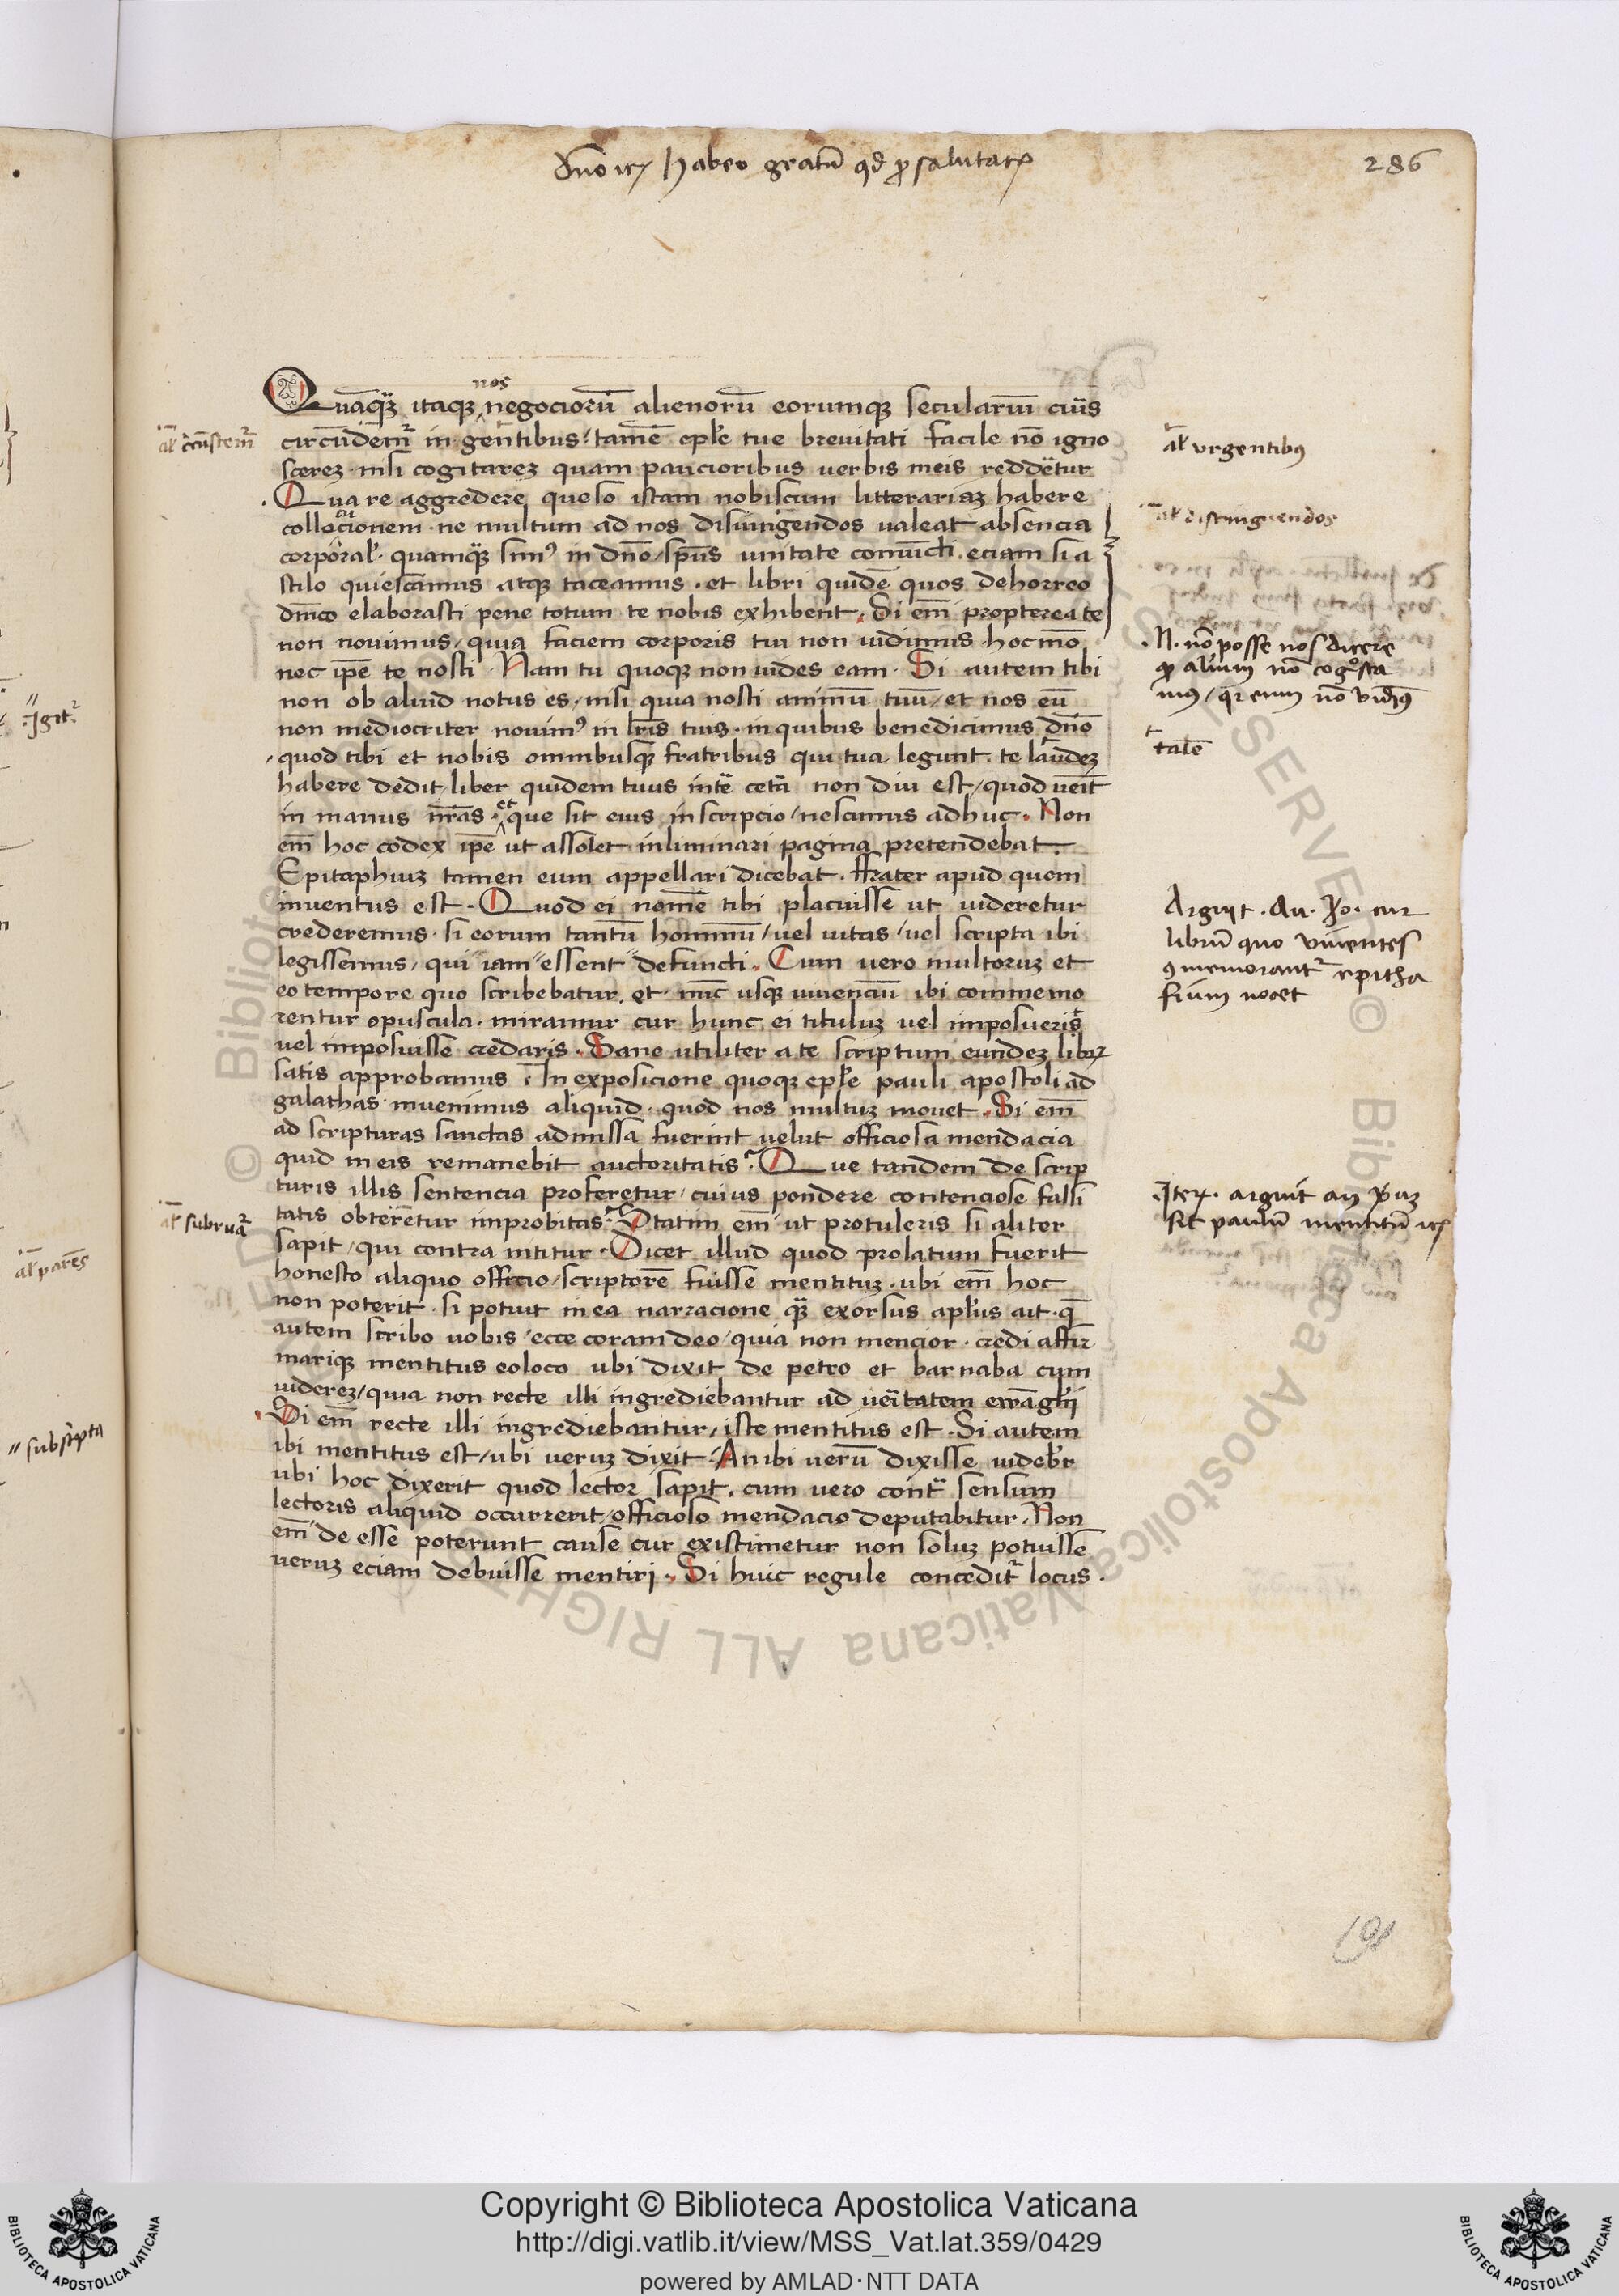 dño itꝶ habeo gratũ qđ ꝓ salutatꝶ
286
nos
Quãqȝ itaqȝ negocioꝶũ alienorũ eorumqȝ seculariũ cũs
circũdem̃r in gentibus tamẽ eplẽ tue breuitati facile nõ igno
scereȝ nisi cogitareȝ quam paucioribus uerbis meis reddet̃ur
Qua re aggredere queso istam nobiscum litterariaȝ habere
collocucionem ne multum ad nos disiungendos ualeat absencia
corporal̃ quamqȝ sim⁹ in dño sp̃us unitate coniũcti eciam si a
stilo quiescamus atqȝ taceamus et libri quidẽ quos de horreo
dñico elaborasti pene totum te nobis exhibent Si em̃ propterea te
non nouimus quia faciem corporis tui non uidimus hoc mõ
nec ip̃e te nosti Nam tu quoqȝ non uides eam Si autem tibi
non ob aliud notus es nisi quia nosti animũ tuũ et nos eũ
non mediocriter nouim⁹ in lr̃is tuis in quibus benedicimus dño
quod tibi et nobis omnibusqȝ fratribus qui tua legunt te laudeȝ
habere dedit liber quidem tuus int̃ cet̃a non diu est quod ueĩt
in manus nr̃as et que sit eius inscripcio nescimus adhuc Non
em̃ hoc codex ip̃e ut assolet in liminari pagina pretendebat
Epitaphiuȝ tamen eum appellari dicebat ffrater apud quem
inuentus est Quod ei nomẽ tibi placuisse ut uideretur
crederemus si eorum tantũ hominũ uel uitas uel scripta ibi
legissemus qui iam essent defuncti Cum uero multoruȝ et
eo tempore quo scribebatur et nũc usqȝ uiuenciũ ibi commemo
rentur opuscula miramur cur hunc ei tituluȝ uel imposueris
uel imposuisse credaris Sane utiliter a te scriptum eundeȝ libꝶ
satis approbamus In exposicione quoqȝ eplẽ pauli apostoli ad
galathas inuenimus aliquid quod nos multuȝ mouet Si em̃
ad scripturas sanctas admissa fuerint uelut officiosa mendacia
quid in eis remanebit auctoritatis Que tandem de scrip
turis illis sentencia proferetur cuius pondere contenciose falsi
tatis obteretur improbitas Statim em̃ ut protuleris si aliter
sapit qui contra nititur Dicet illud quod prolatum fuerit
honesto aliquo officio scriptorẽ fuisse mentituȝ ubi em̃ hoc
non poterit si potuit in ea narracione quã exorsus apl̃us ait q̃
autem scribo uobis ecce coram deo quia non mencior credi affir
mariqȝ mentitus eo loco ubi dixit de petro et barnaba cum
uidereȝ quia non recte illi ingrediebantur ad ueĩtatem ewãglij
Si em̃ recte illi ingrediebantur iste mentitus est Si autem
ibi mentitus est ubi ueruȝ dixit An ibi uerũ dixisse uidebr̃
ubi hoc dixerit quod lector sapit cum uero cont̃ sensum
lectoris aliquid occurrerit officioso mendacio deputabitur Non
em̃ de esse poterunt cause cur existimetur non soluȝ potuisse
ueruȝ eciam debuisse mentiri Si huic regule concedit̃ locus
al̃ urgentibꝰ
al̃ distinguendos
N. nõ posse nos dicere
ꝓ alium nõ cogosca
mus qꝛ eum nõ vidim⁹
talẽ
Arguit Au. Jo. cur
librũ quo viuentes
ꝯmemorant̃ epitha
fium uocet
Iteꝶ arguit an
sit paulũ mentitũ
al̃ subruat̃
Igit̃
al̃ pares
subscripta
198
Copyright © Biblioteca Apostolica Vaticana
http://digi.vatlib.it/view/MSS_Vat.lat.359/0429
powered by AMLAD·NTT DATA
BIBLIOTECA APOSTOLICA VATICANA
BIBLIOTECA APOSTOLICA VATICANA